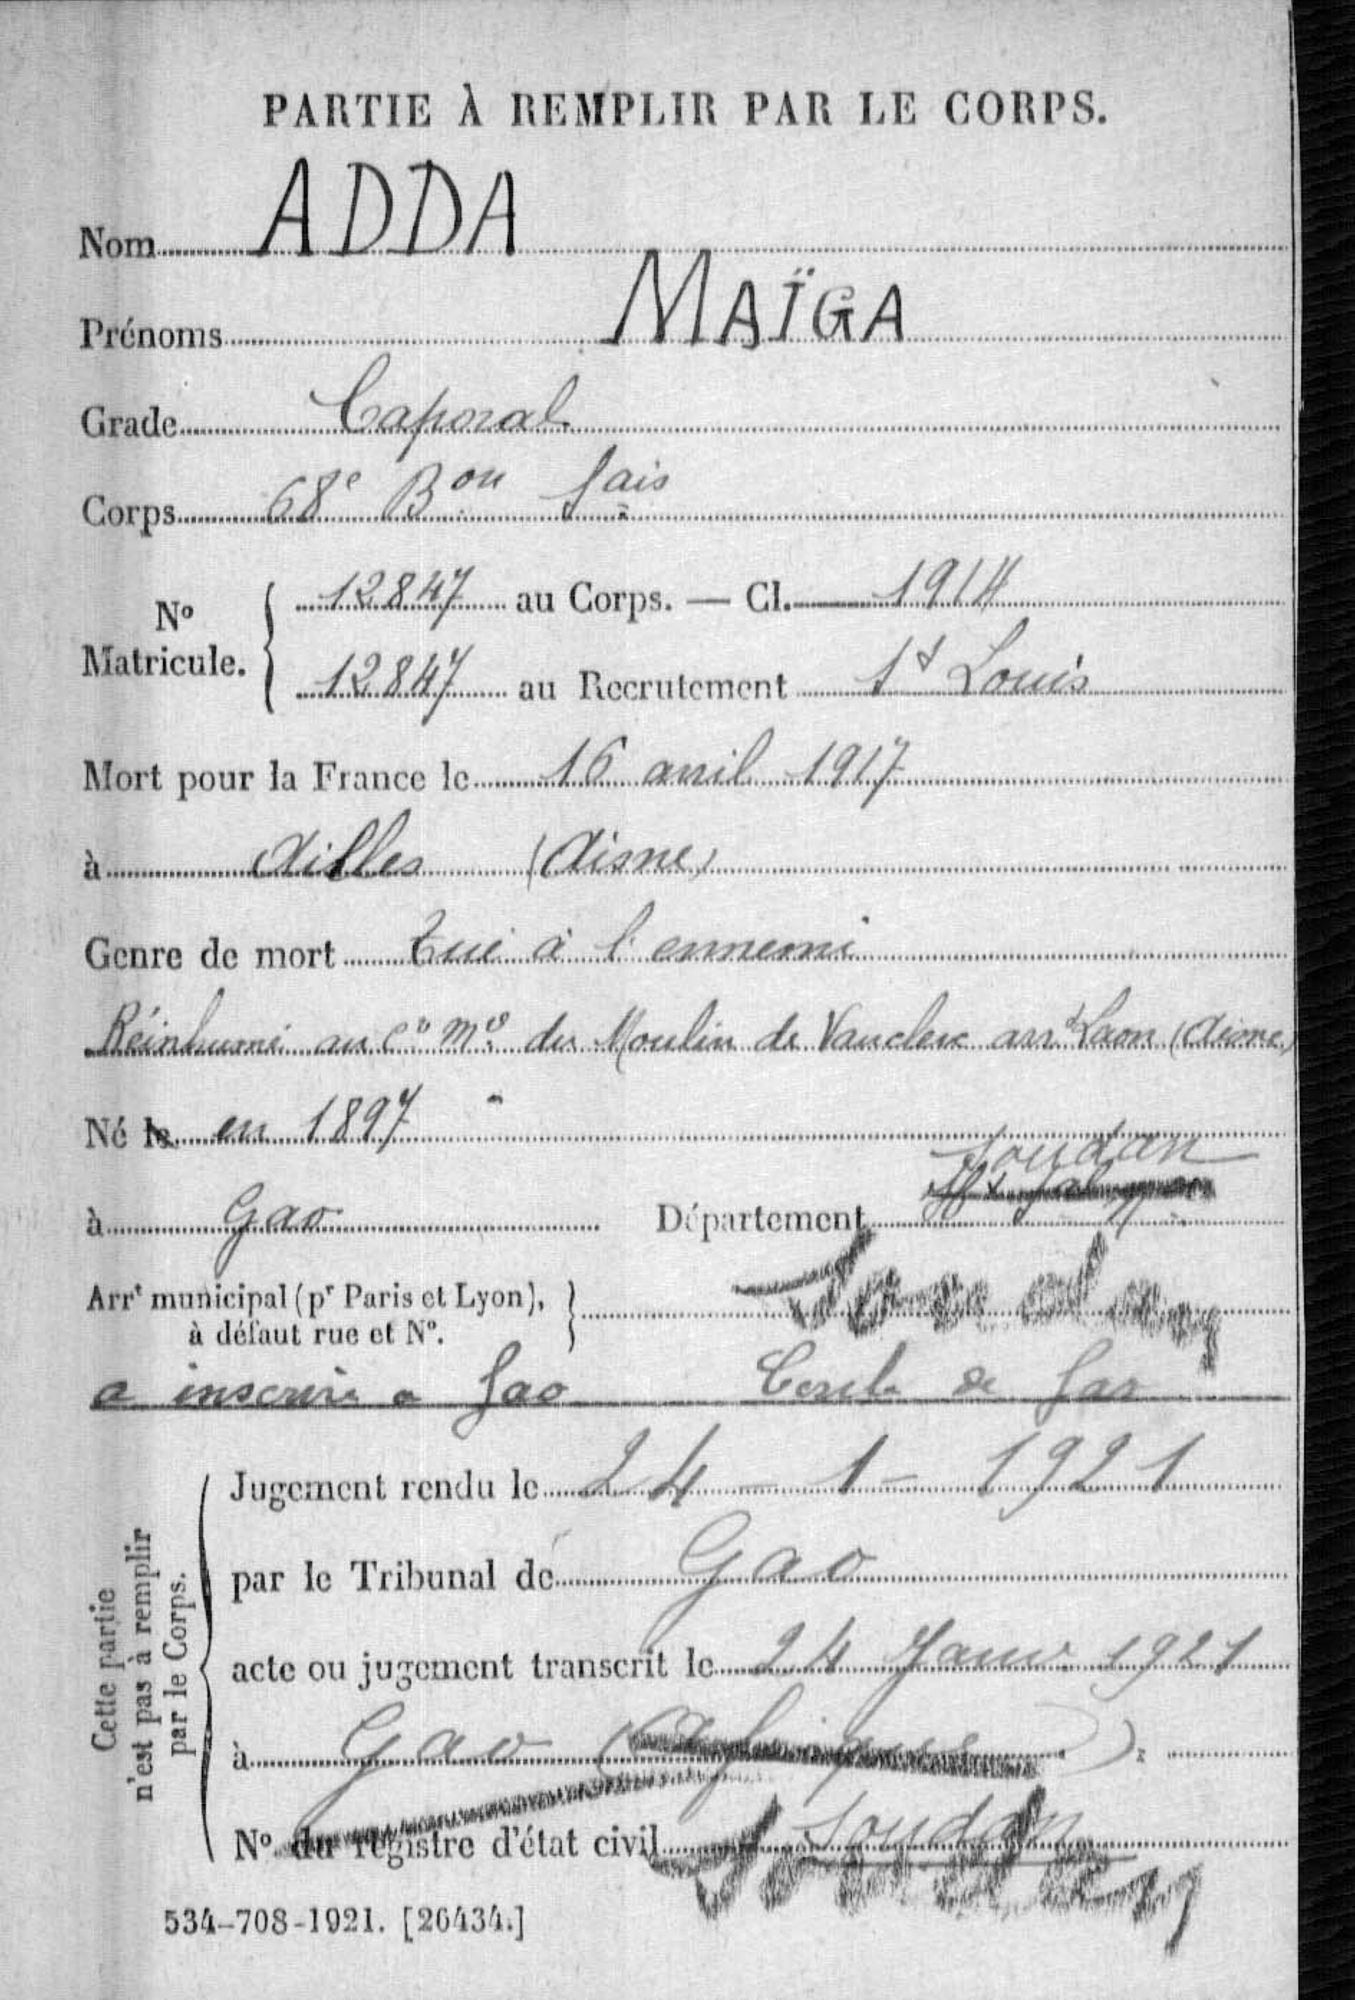 PARTIE À REMPLIR PAR LE CORPS.
Nom ADDA
Prénoms MAÏGA
Grade Caporal
Corps 68e Bon Sais
No Matricule. 12847 au Corps. — Cl. 1914
12847 au Recrutement St Louis
Mort pour la France le 16 avril 1917
à Ailles (Aisne)
Genre de mort Tué à l'ennemi
Réinhumé au Cre Mre du Moulin de Vauclerc arrt Laon (Aisne)
Né le en 1897
Soudan
à Gao Département
Arrt municipal (pr Paris et Lyon), à défaut rue et No. Soudan
a inscrire a Gao Cercle de Gao
Cette partie n'est pas à remplir par le Corps.
Jugement rendu le 24-1-1921
par le Tribunal de Gao
acte ou jugement transcrit le 24 Janv 1921
à Gao
No du registre d'état civil Soudan
Soudan
534-708-1921. [26434.]